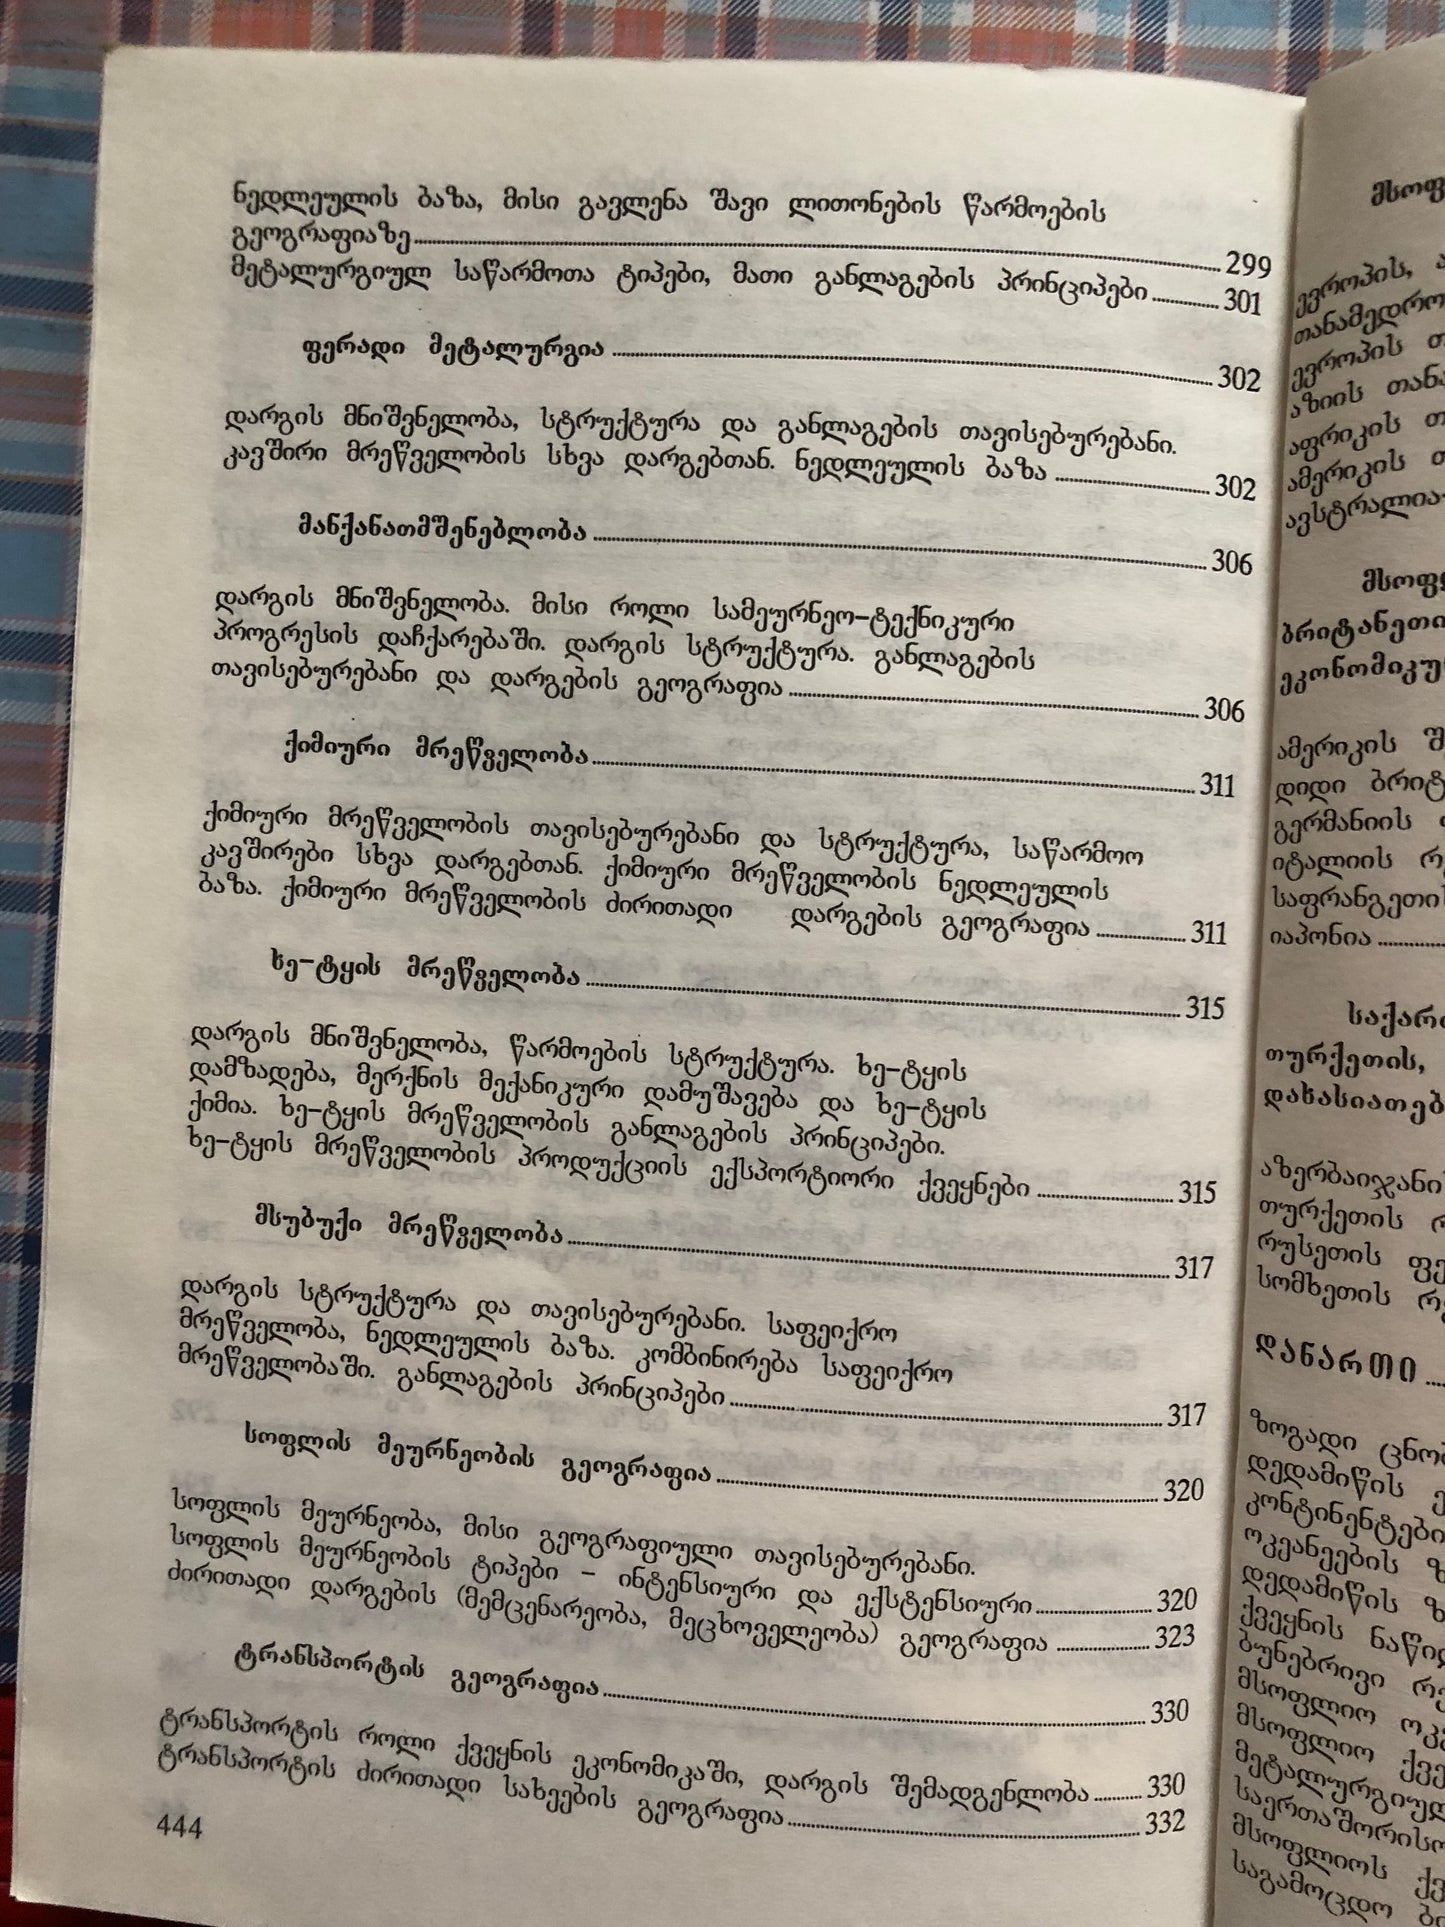 ნედლეულის ბაზა, მისი გავლენა შავი ლითონების წარმოების
გეოგრაფიაზე 299
მეტალურგიულ საწარმოთა ტიპები, მათი განლაგების პრინციპები 301
ფერადი მეტალურგია 302
დარგის მნიშვნელობა, სტრუქტურა და განლაგების თავისებურებანი.
კავშირი მრეწველობის სხვა დარგებთან. ნედლეულის ბაზა 302
მანქანათმშენებლობა 306
დარგის მნიშვნელობა. მისი როლი სამეურნეო-ტექნიკური
პროგრესის დაჩქარებაში. დარგის სტრუქტურა. განლაგების
თავისებურებანი და დარგების გეოგრაფია 306
ქიმიური მრეწველობა 311
ქიმიური მრეწველობის თავისებურებანი და სტრუქტურა, საწარმოო
კავშირები სხვა დარგებთან. ქიმიური მრეწველობის ნედლეულის
ბაზა. ქიმიური მრეწველობის ძირითადი დარგების გეოგრაფია 311
ხე-ტყის მრეწველობა 315
დარგის მნიშვნელობა, წარმოების სტრუქტურა. ხე-ტყის
დამზადება, მერქნის მექანიკური დამუშავება და ხე-ტყის
ქიმია. ხე-ტყის მრეწველობის განლაგების პრინციპები.
ხე-ტყის მრეწველობის პროდუქციის ექსპორტიორი ქვეყნები 315
მსუბუქი მრეწველობა 317
დარგის სტრუქტურა და თავისებურებანი. საფეიქრო
მრეწველობა, ნედლეულის ბაზა. კომბინირება საფეიქრო
მრეწველობაში. განლაგების პრინციპები 317
სოფლის მეურნეობის გეოგრაფია 320
სოფლის მეურნეობა, მისი გეოგრაფიული თავისებურებანი.
სოფლის მეურნეობის ტიპები – ინტენსიური და ექსტენსიური 320
ძირითადი დარგების (მემცენარეობა, მეცხოველეობა) გეოგრაფია 323
ტრანსპორტის გეოგრაფია 330
ტრანსპორტის როლი ქვეყნის ეკონომიკაში, დარგის შემადგენლობა 330
ტრანსპორტის ძირითადი სახეების გეოგრაფია 332
444
ევროპის,
ევროპის
აზიის
აფრიკის
ამერიკის
ამერიკის
დიდი
გერმანიის
იტალიის
იაპონია
თურქეთის,
თურქეთის
რუსეთის
სომხეთის
დანართი
ზოგადი
დედამიწის
კონტინენტები
ოკეანეების
დედამიწის
ქვეყნის
ბუნებრივი
მსოფლიო
მსოფლიო
მსოფლიოს
საგამოცდო